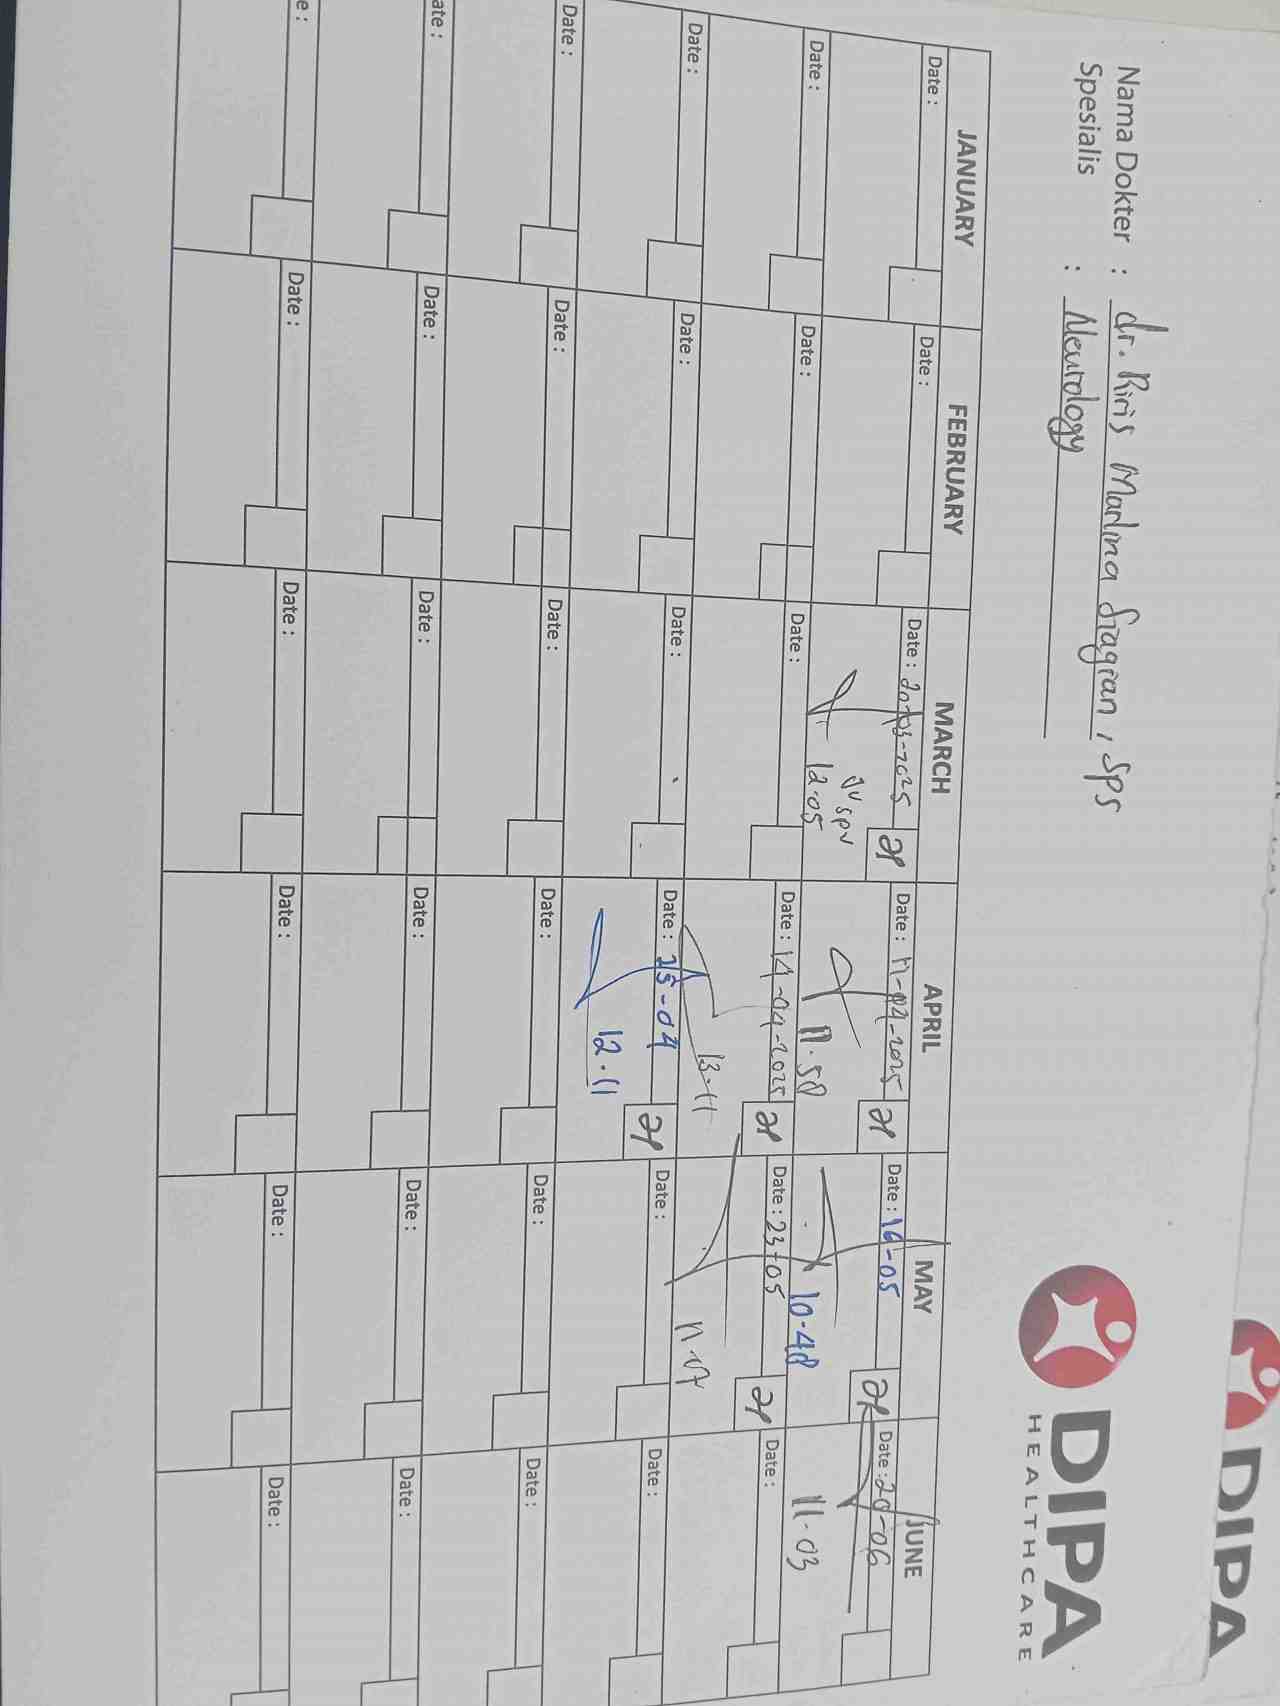 DIPA
DIPA
HEALTHCARE
Nama Dokter : dr. Riris Marlina Siagian, SpS
Spesialis : Neurology
JANUARY FEBRUARY MARCH APRIL MAY JUNE
Date : Date : Date : 20-03-2025 Date : 11-04-2025 Date : 16-05 Date : 20-06
12.05 11.58 10-48 11-03
Date : Date : Date : Date : 14-04-2025 Date : 23-05 Date :
13.11 11-07
Date : Date : Date : Date : 25-04 Date : Date :
12.11
Date : Date : Date : Date : Date : Date :
ate : Date : Date : Date : Date : Date :
e : Date : Date : Date : Date : Date :